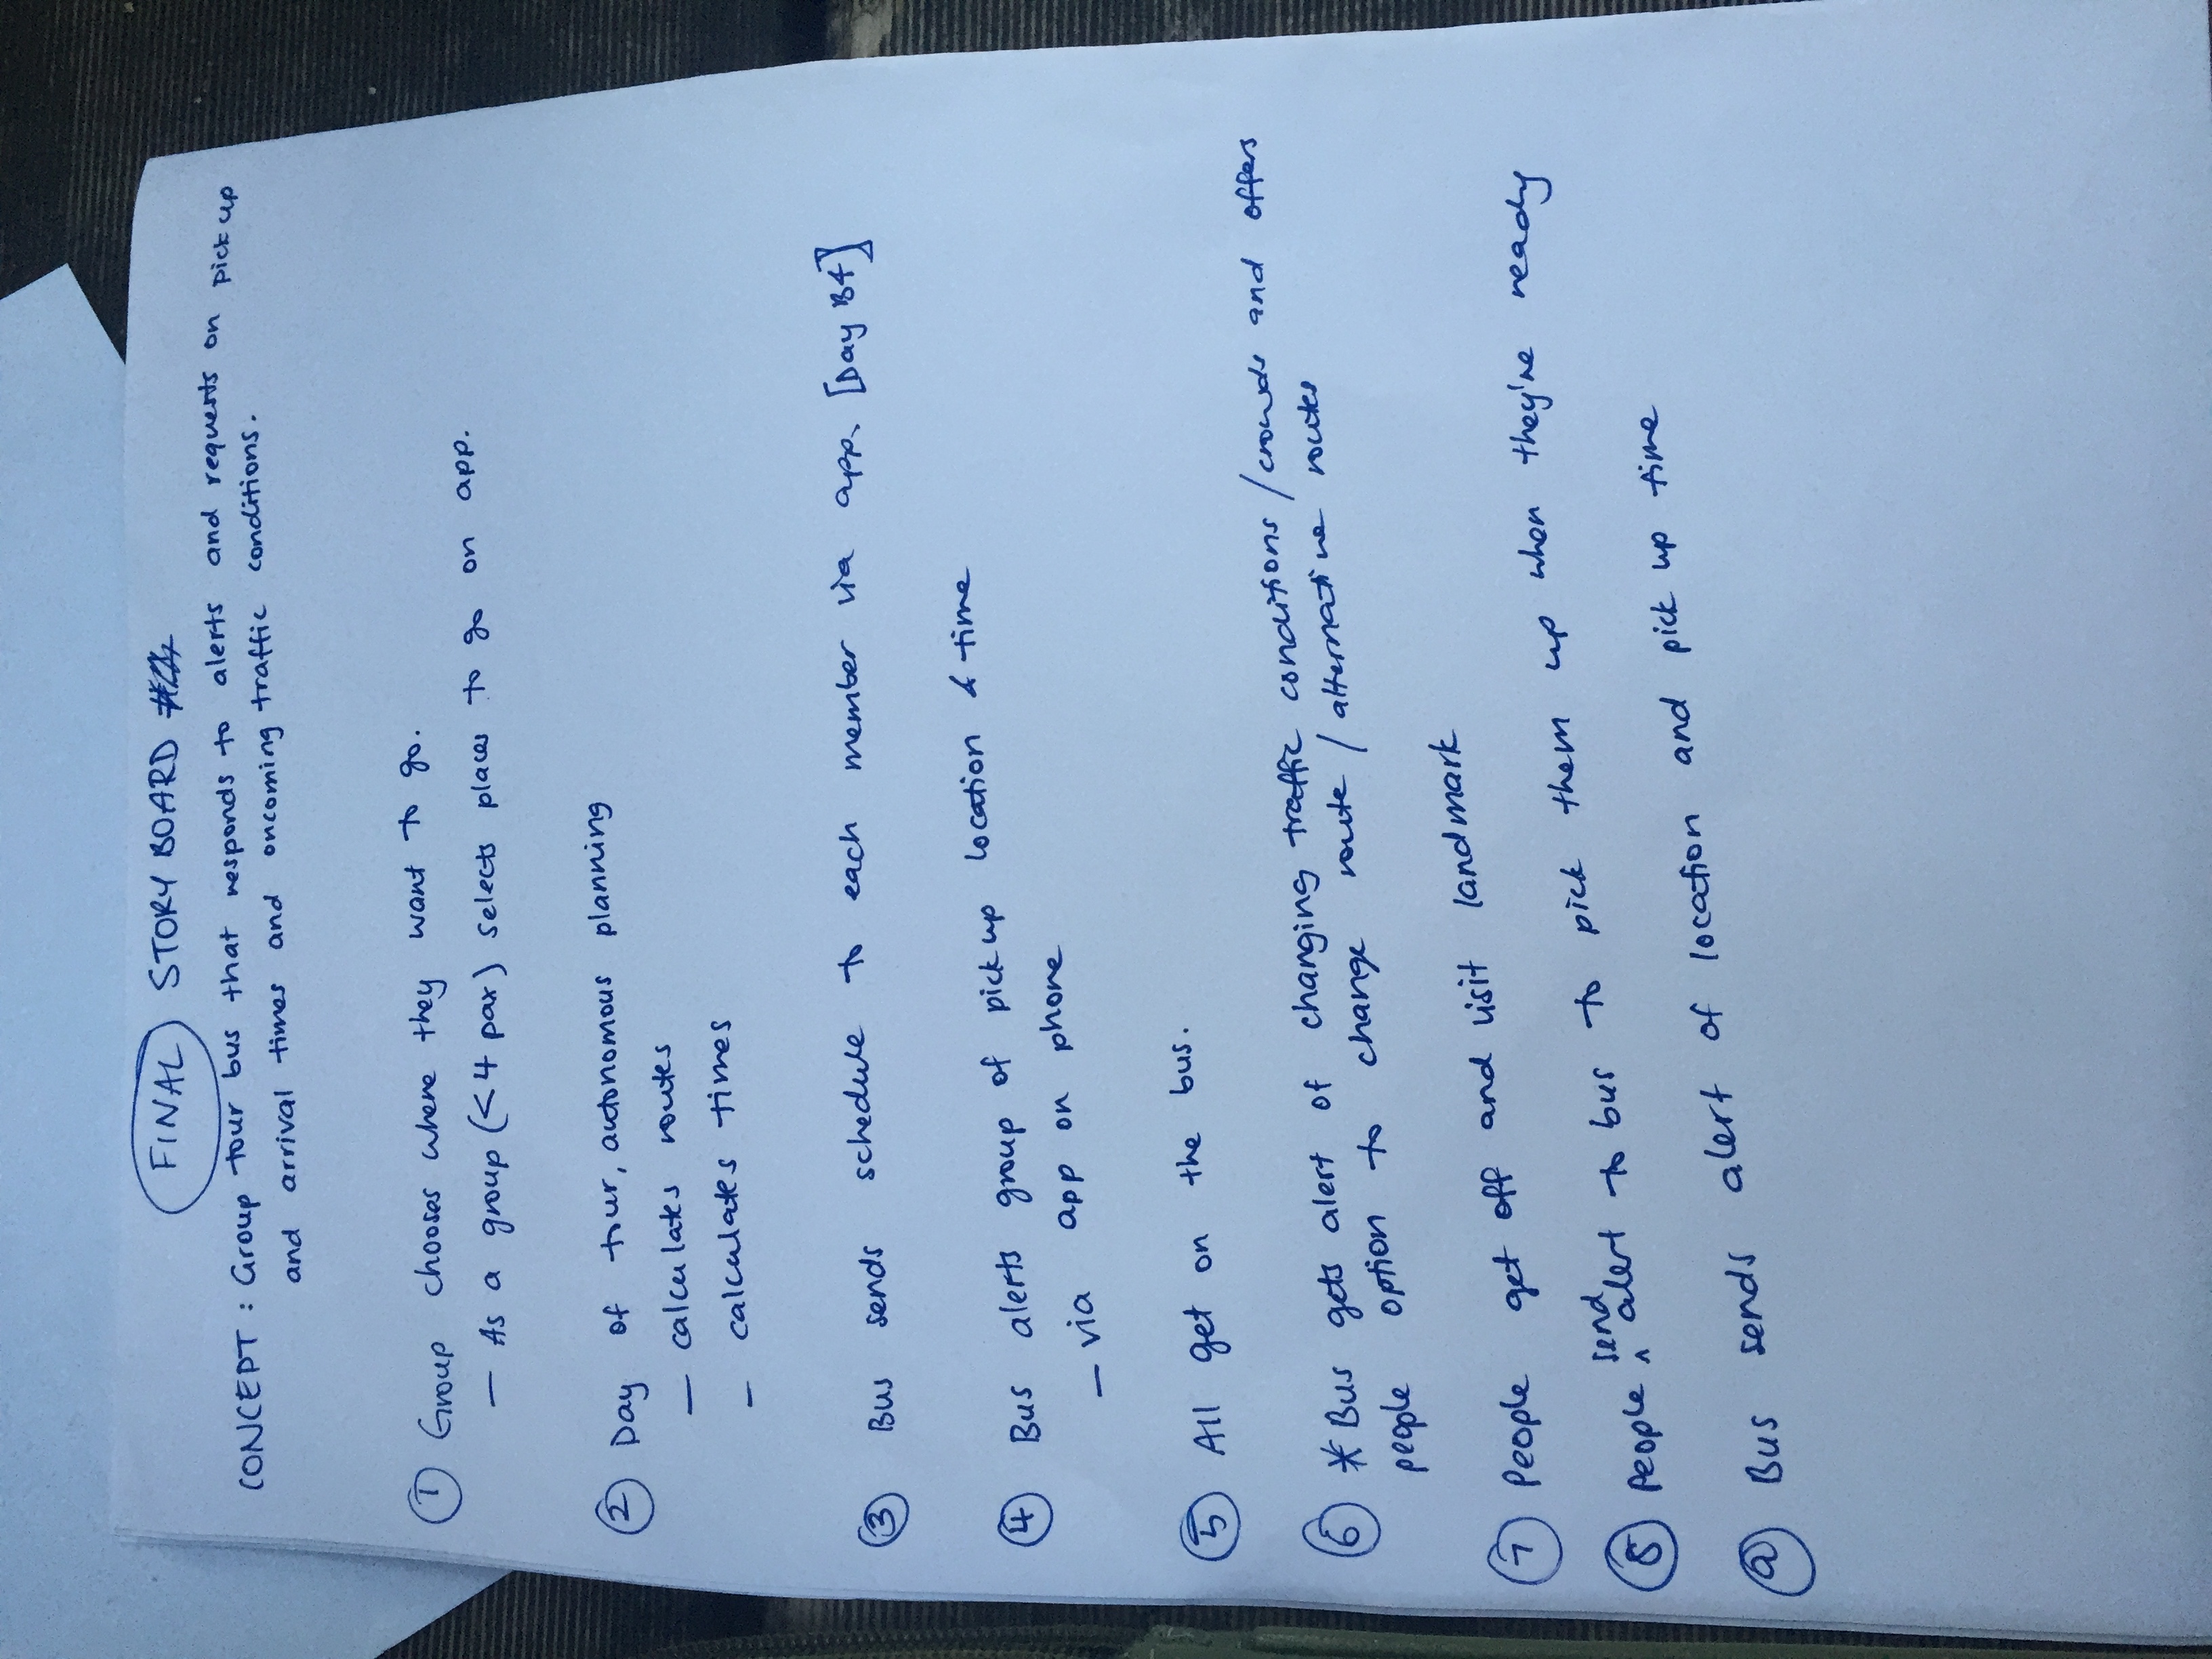 FINAL STORY BOARD
CONCEPT: Group tour bus that responds to alerts and requests on pick up
and arrival times and oncoming traffic conditions.
1 Group chooses where they want to go.
- As a group (<4 pax) selects places to go on app.
2 Day of tour, autonomous planning
- calculates routes
- calculates times
3 Bus sends schedule to each member via app. [Day B4]
4 Bus alerts group of pick up location & time
- via app on phone
5 All get on the bus.
6 * Bus gets alert of changing traffic conditions / crowds and offers
people option to change route / alternative routes
7 People get off and visit landmark
8 People send alert to bus to pick them up when they're ready
9 Bus sends alert of location and pick up time